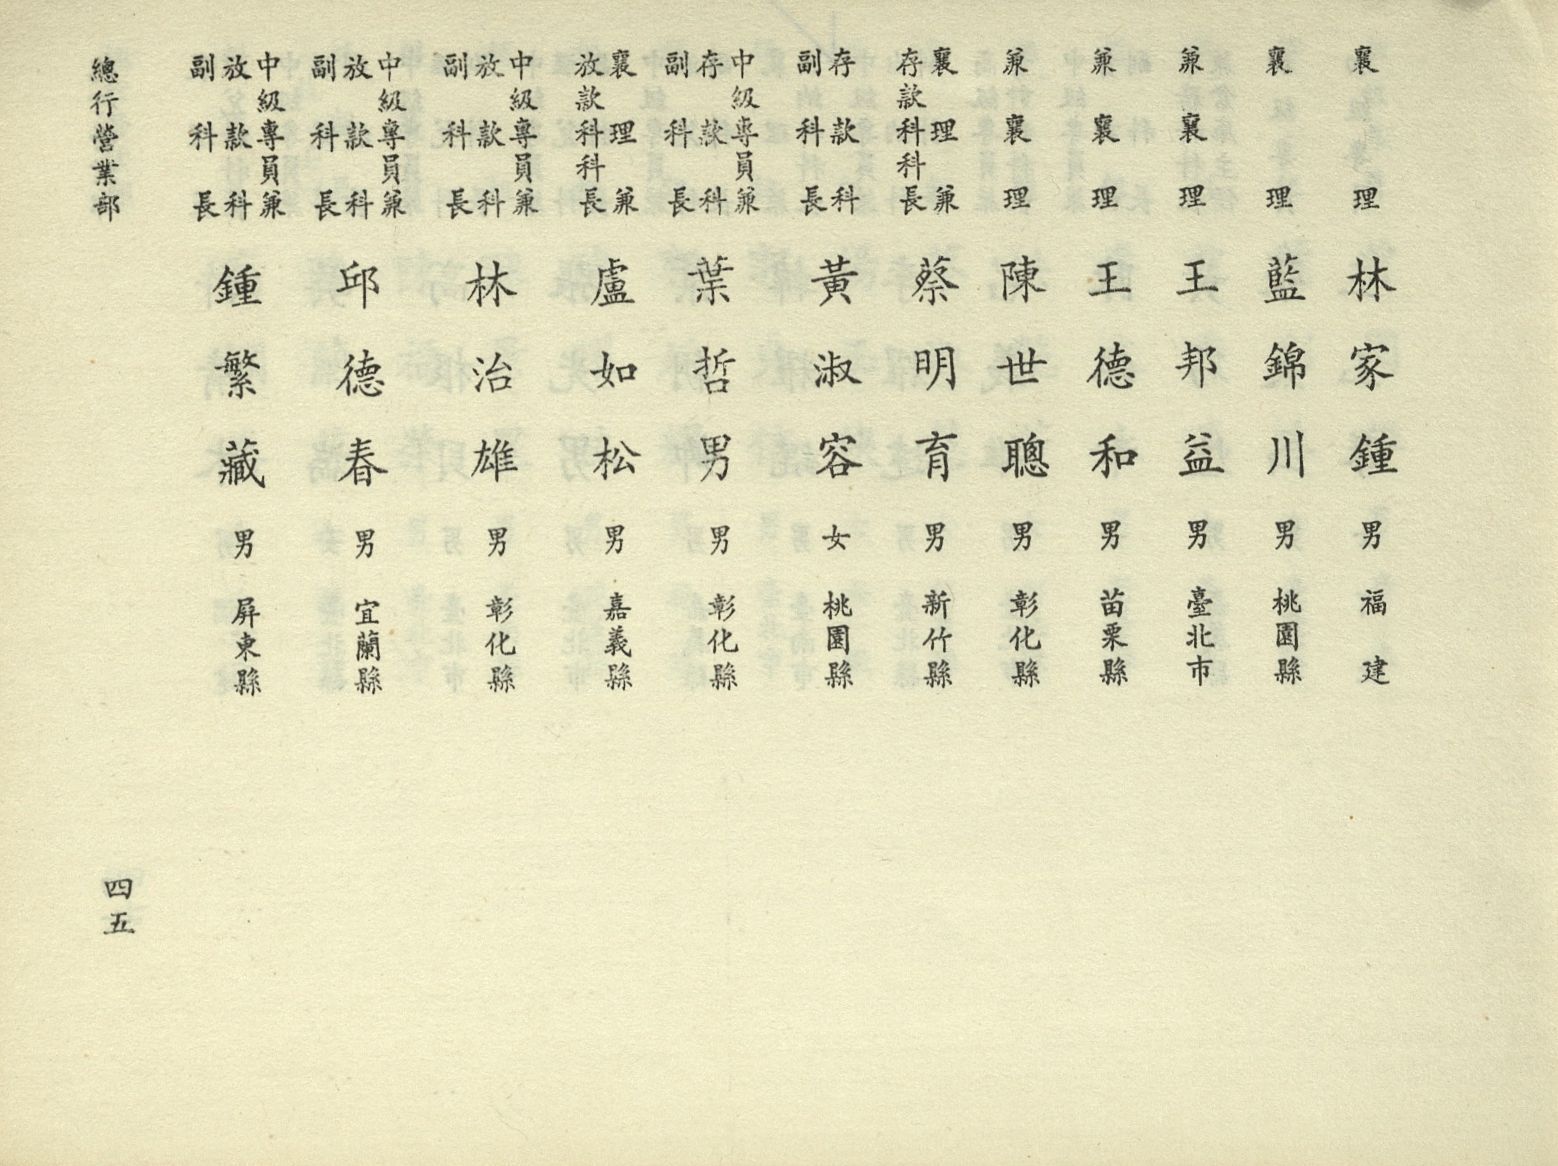 襄理 林家鍾 男 福建
襄理 藍錦川 男 桃園縣
兼襄理 王邦益 男 臺北市
兼襄理 王德和 男 苗栗縣
兼襄理 陳世聰 男 彰化縣
襄理兼
存款科科長 蔡明育 男 新竹縣
存款科
副科長 黃淑容 女 桃園縣
中級專員兼
存款科
副科長 葉哲男 男 彰化縣
襄理兼
放款科科長 盧如松 男 嘉義縣
中級專員兼
放款科
副科長 林治雄 男 彰化縣
中級專員兼
放款科
副科長 邱德春 男 宜蘭縣
中級專員兼
放款科
副科長 鍾繁藏 男 屏東縣
總行營業部
四五